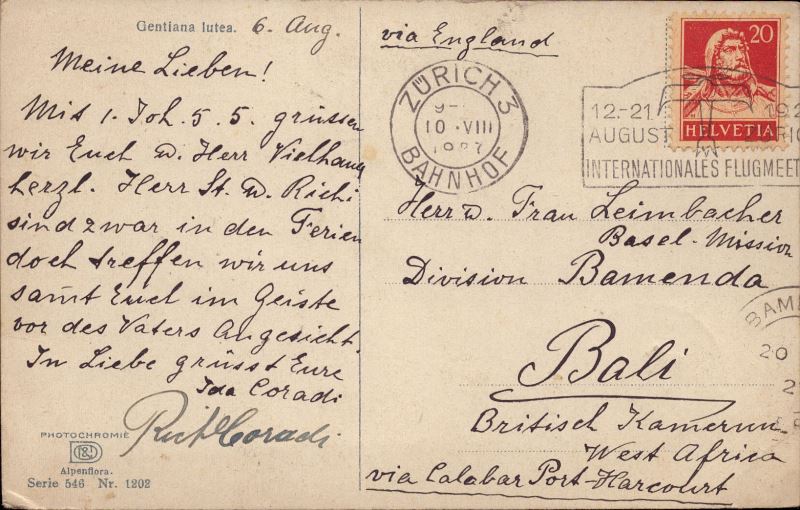 Gentiana lutea. 6. Aug.
Meine Lieben!
Mit 1. Joh. 5. 5. grüssen
wir Euch u. Herr Vielhauer
herzl. Herr St. u. Richi
sind zwar in den Ferien
doch treffen wir uns
samt Euch im Geiste
vor des Vaters Angesicht.
In Liebe grüsst Eure
Ida Coradi
Coradi
PHOTOCHROMIE
Alpenflora.
Serie 546 Nr. 1202
via England
20
HELVETIA
ZÜRICH 3
9-
10.VIII
1927
BAHNHOF
12.-21. 192
AUGUST RIC
INTERNATIONALES FLUGMEET
Herr u. Frau Leimbacher
Basel-Mission
Division Bamenda
Bali
Britisch Kamerun
West Africa
via Calabar Port-Harcourt
BAME
20
2